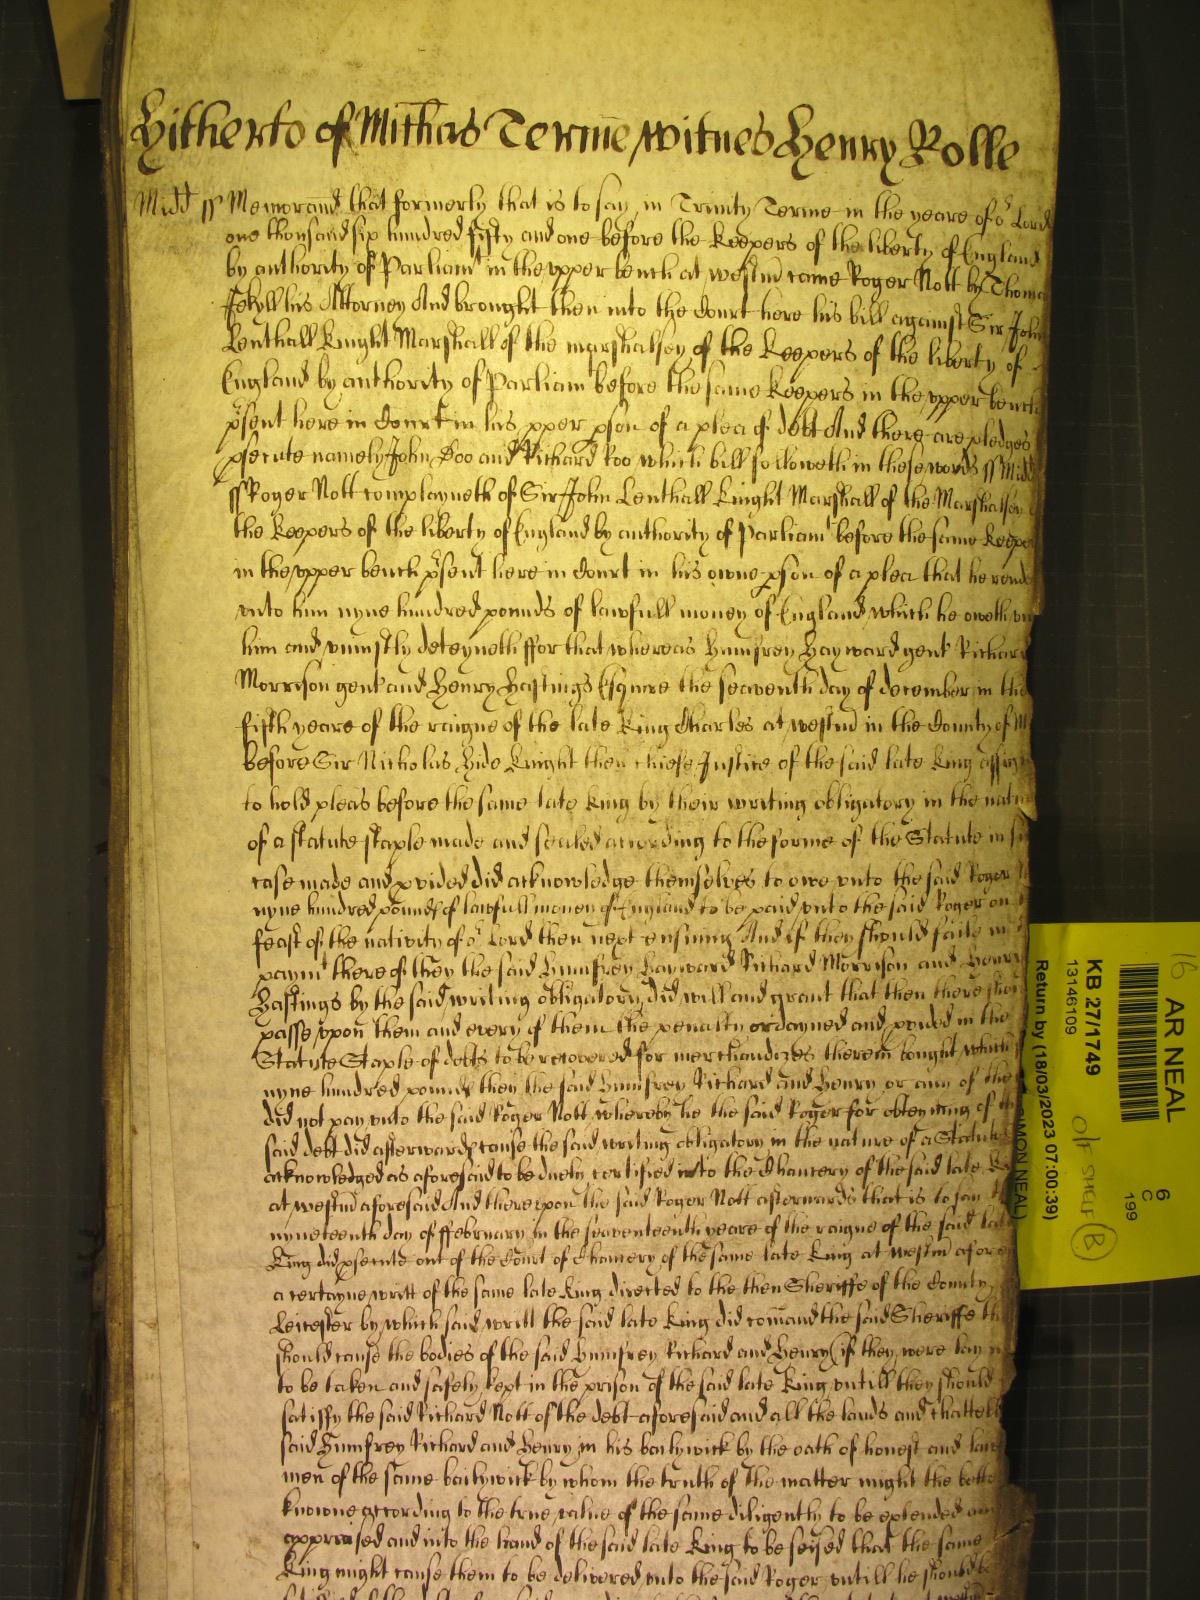 Hitherto of Mithas Terme witnes Henry Rolle
Midd ss Memorand that formerly that is to say in Trinity Terme in the yeare of or Lord
one thousand six hundred fifty and one before the Keepers of the liberty of England
by authority of Parliamt in the vpper bench at westm came Roger Nott by Thomas
Jekyll his Attorney And brought then into the Court here his bill against Sir John
Lenthall Knight Marshall of the marshalsey of the Keepers of the liberty of
England by authority of Parliamt before the same Keepers in the vpper bench
psent here in Court in his pper pson of a plea of debt And there are pledges
psecute namely John Doo and Richard Roo which bill followeth in these words ss Midd
ss Roger Nott complayneth of Sir John Lenthall Knight Marshall of the Marshalsey
the Keepers of the liberty of England by authority of Parliamt before the same Keepe
in the vpper bench psent here in Court in his owne pson of a plea that he rend
vnto him nyne hundred pounds of lawfull money of England which he oweth vn
him and vniustly deteyneth ffor that whereas Humfrey Hayward gent Richard
Morrison gent and Henry Hastings Esquire the seaventh day of december in the
fifth yeare of the raigne of the late King Charles at westm in the County of M
before Sir Nicholas Hide Knight then chiefe Justice of the said late King assign
to hold pleas before the same late King by their writing obligatory in the natu
of a statute staple made and sealed according to the forme of the Statute in su
case made and pvided did acknowledge themselves to owe vnto the said Roger N
nyne hundred pounds of lawfull money of England to be paid vnto the said Roger on
feast of the nativity of or Lord then next ensuing And if they should faile in
paymt thereof they the said Humfrey Hayward Richard Morrison and Henry
Hastings by the said writing obligatory did will and grant that then there shou
passe vpon them and every of them the penalty ordayned and pvided in the
Statute Staple of debts to be recovered for merchandizes therein bought which
nyne hundred pounds they the said Humfrey Richard and Henry or any of the
did not pay vnto the said Roger Nott whereby he the said Roger for obteyning of
said debt did afterwards cause the said writing obligatory in the nature of a Statute
acknowledged as aforesaid to be duely certified into the Chancery of the said late K
at westm aforesaid And therevpon the said Roger Nott afterwards that is to say
nyneteenth day of ffebruary in the seaventeenth yeare of the raigne of the said late
King did psecute out of the Court of Chancery of the same late King at westm afore
a certayne writt of the same late King directed to the then Sheriffe of the County
Leicester by which said writt the said late King did comand the said Sheriffe th
should cause the bodies of the said Humfrey Richard and Henry (if they were lay
to be taken and safely kept in the prison of the said late King vntill they should
satisfy the said Richard Nott of the debt aforesaid and all the lands and chattells
said Humfrey Richard and Henry in his bailywick by the oath of honest and law
men of the same bailywick by whom the truth of the matter might the bette
knowne according to the true value of the same diligently to be extended an
appraised and into the hand of the said late King to be seised that the same
King might cause them to be delivered vnto the said Roger vntill he should b
16 AR NEAL
KB 27/1749
13146109
Return by (18/03/2023 07:00:39)
SIMON NEAL)
6
C
199
Off SHELF
B